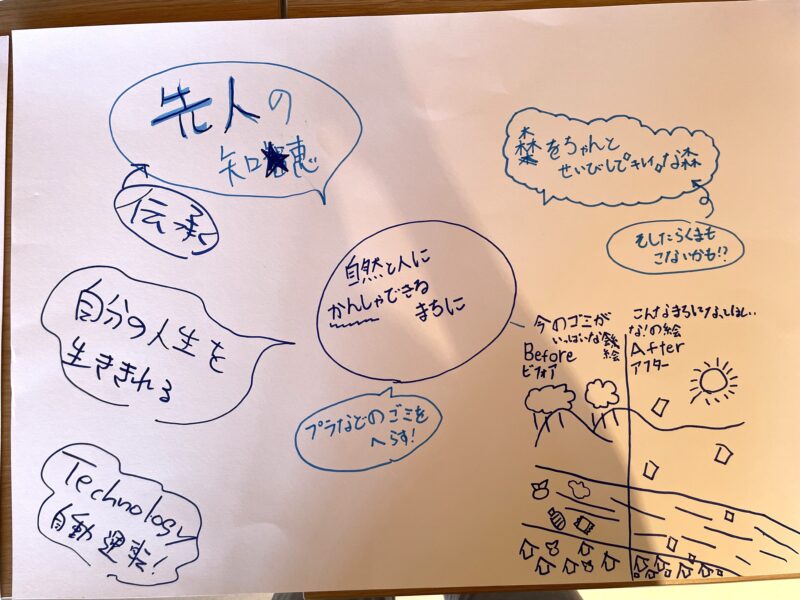 先人の
知恵
伝承
森をちゃんと
せいびしてキレイな森
そしたらくまも
こないかも!?
自然と人に
かんしゃできる
まちに
自分の人生を
生ききれる
プラなどのゴミを
へらす!
Technology
自動運転!
今のゴミが
いっぱいな
絵
Before
ビフォア
こんなまちになってほしい
な!の絵
After
アフター